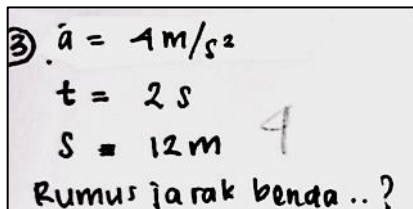 ③ a = 4 m/s²
t = 2 s
S = 12 m 4
Rumus jarak benda..?